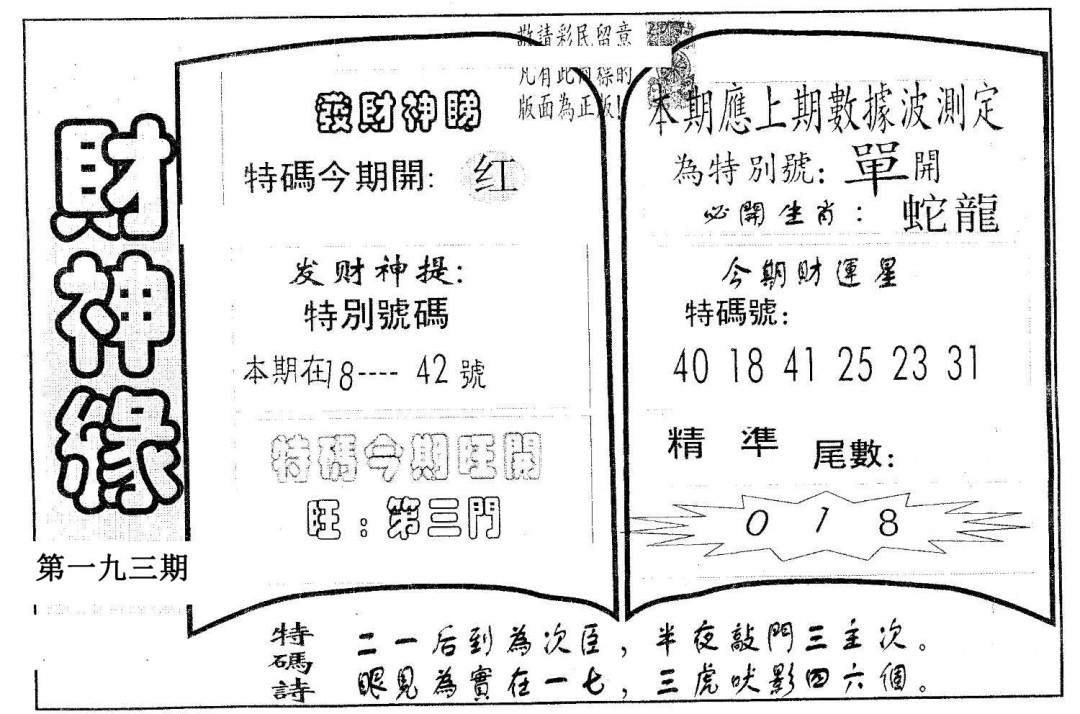 財神緣
第一九三期
敬請彩民留意
凡有此同樣的
版面為正版!
發財神睇
特碼今期開: 红
发财神提:
特別號碼
本期在18---- 42號
特碼今期旺開
旺:第三門
本期應上期數據波測定
為特別號: 單開
必開生肖: 蛇龍
今期財運星
特碼號:
40 18 41 25 23 31
精準 尾數:
0 1 8
特碼詩
二一后到為次臣,半夜敲門三主次。
眼見為實在一七,三虎吠影四六個。